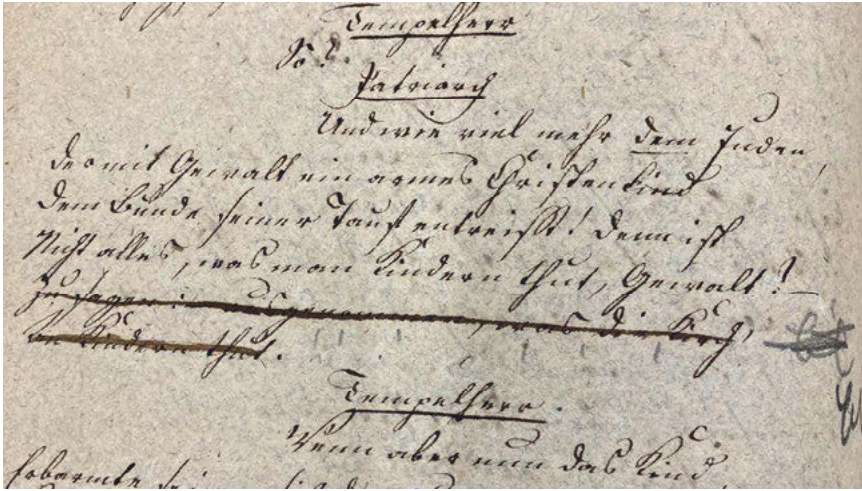 Tempelherr
So?
Patriarch
Und wie viel mehr dem Juden,
der mit Gewalt ein armes Christenkind
dem Bunde seiner Tauf entreisst! Denn ist
Nicht alles, was man Kindern thut, Gewalt? –
zu sagen: – ausgenommen, was die Kirch'
an Kindern thut.
Tempelherr.
Wenn aber nun das Kind,
Erbarmte sei